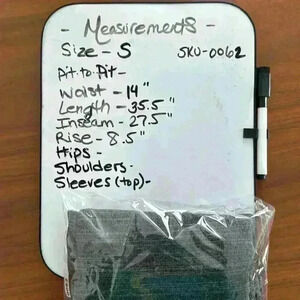 - Measurements -
Size - S SKU-0062
Pit-to-Pit -
Waist - 14"
Length - 35.5"
Inseam - 27.5"
Rise - 8.5"
Hips -
Shoulders -
Sleeves (top) -